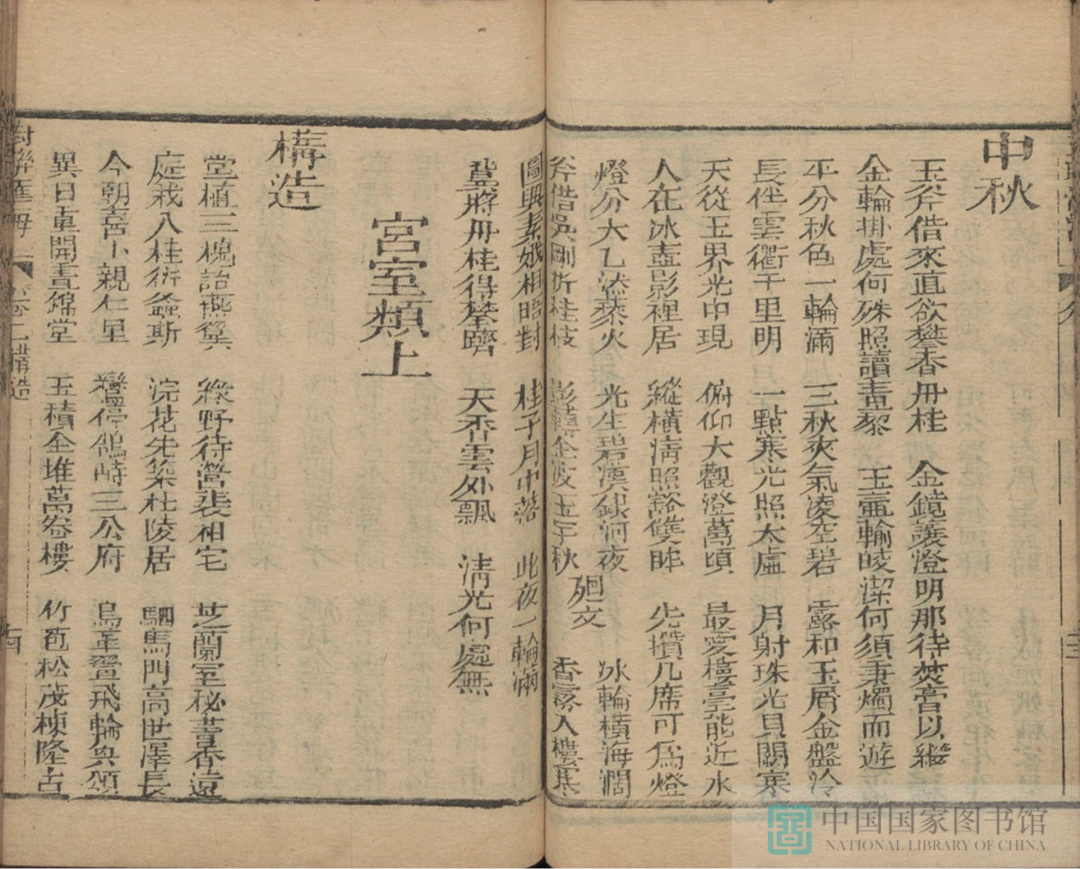 中秋
玉斧借來直欲攀香丹桂 金鏡護燈明那待焚膏以繼
金輪掛處何殊照讀青藜 玉壷輸皎潔何須秉燭而遊
平分秋色一輪滿 三秋爽氣凌空碧 露和玉屑金盤冷
長徃雲衢千里明 一點寒光照太虛 月射珠光貝闕寒
天從玉界光中現 俯仰大觀澄萬頃 最愛樓亭能近水
人在冰壺影裡居 縱橫清照豁雙眸 先攢几席可爲燈
燈分大乙添藜火 光生碧漢銀河夜 冰輪橫海濶
斧借吳剛折桂枝 彭 金波玉宇秋 廻文 香霧入樓寒
圖與素娥相晤對 桂子月中落 此夜一輪滿
冀將丹桂得攀躋 天香雲外飄 清光何處無
宮室類上
構造
堂植三槐詒燕翼 綠野待營裴相宅 芝蘭室秘書香遠
庭栽八桂衍螽斯 浣花先築杜陵居 駟馬門高世澤長
今朝喜卜親仁里 鸞停鵠峙三公府 鳥革翬飛輪奐頌
異日重開晝錦堂 玉積金堆萬卷樓 竹苞松茂棟隆占
對聯匯海上 卷二構造
中国国家图书馆
NATIONAL LIBRARY OF CHINA